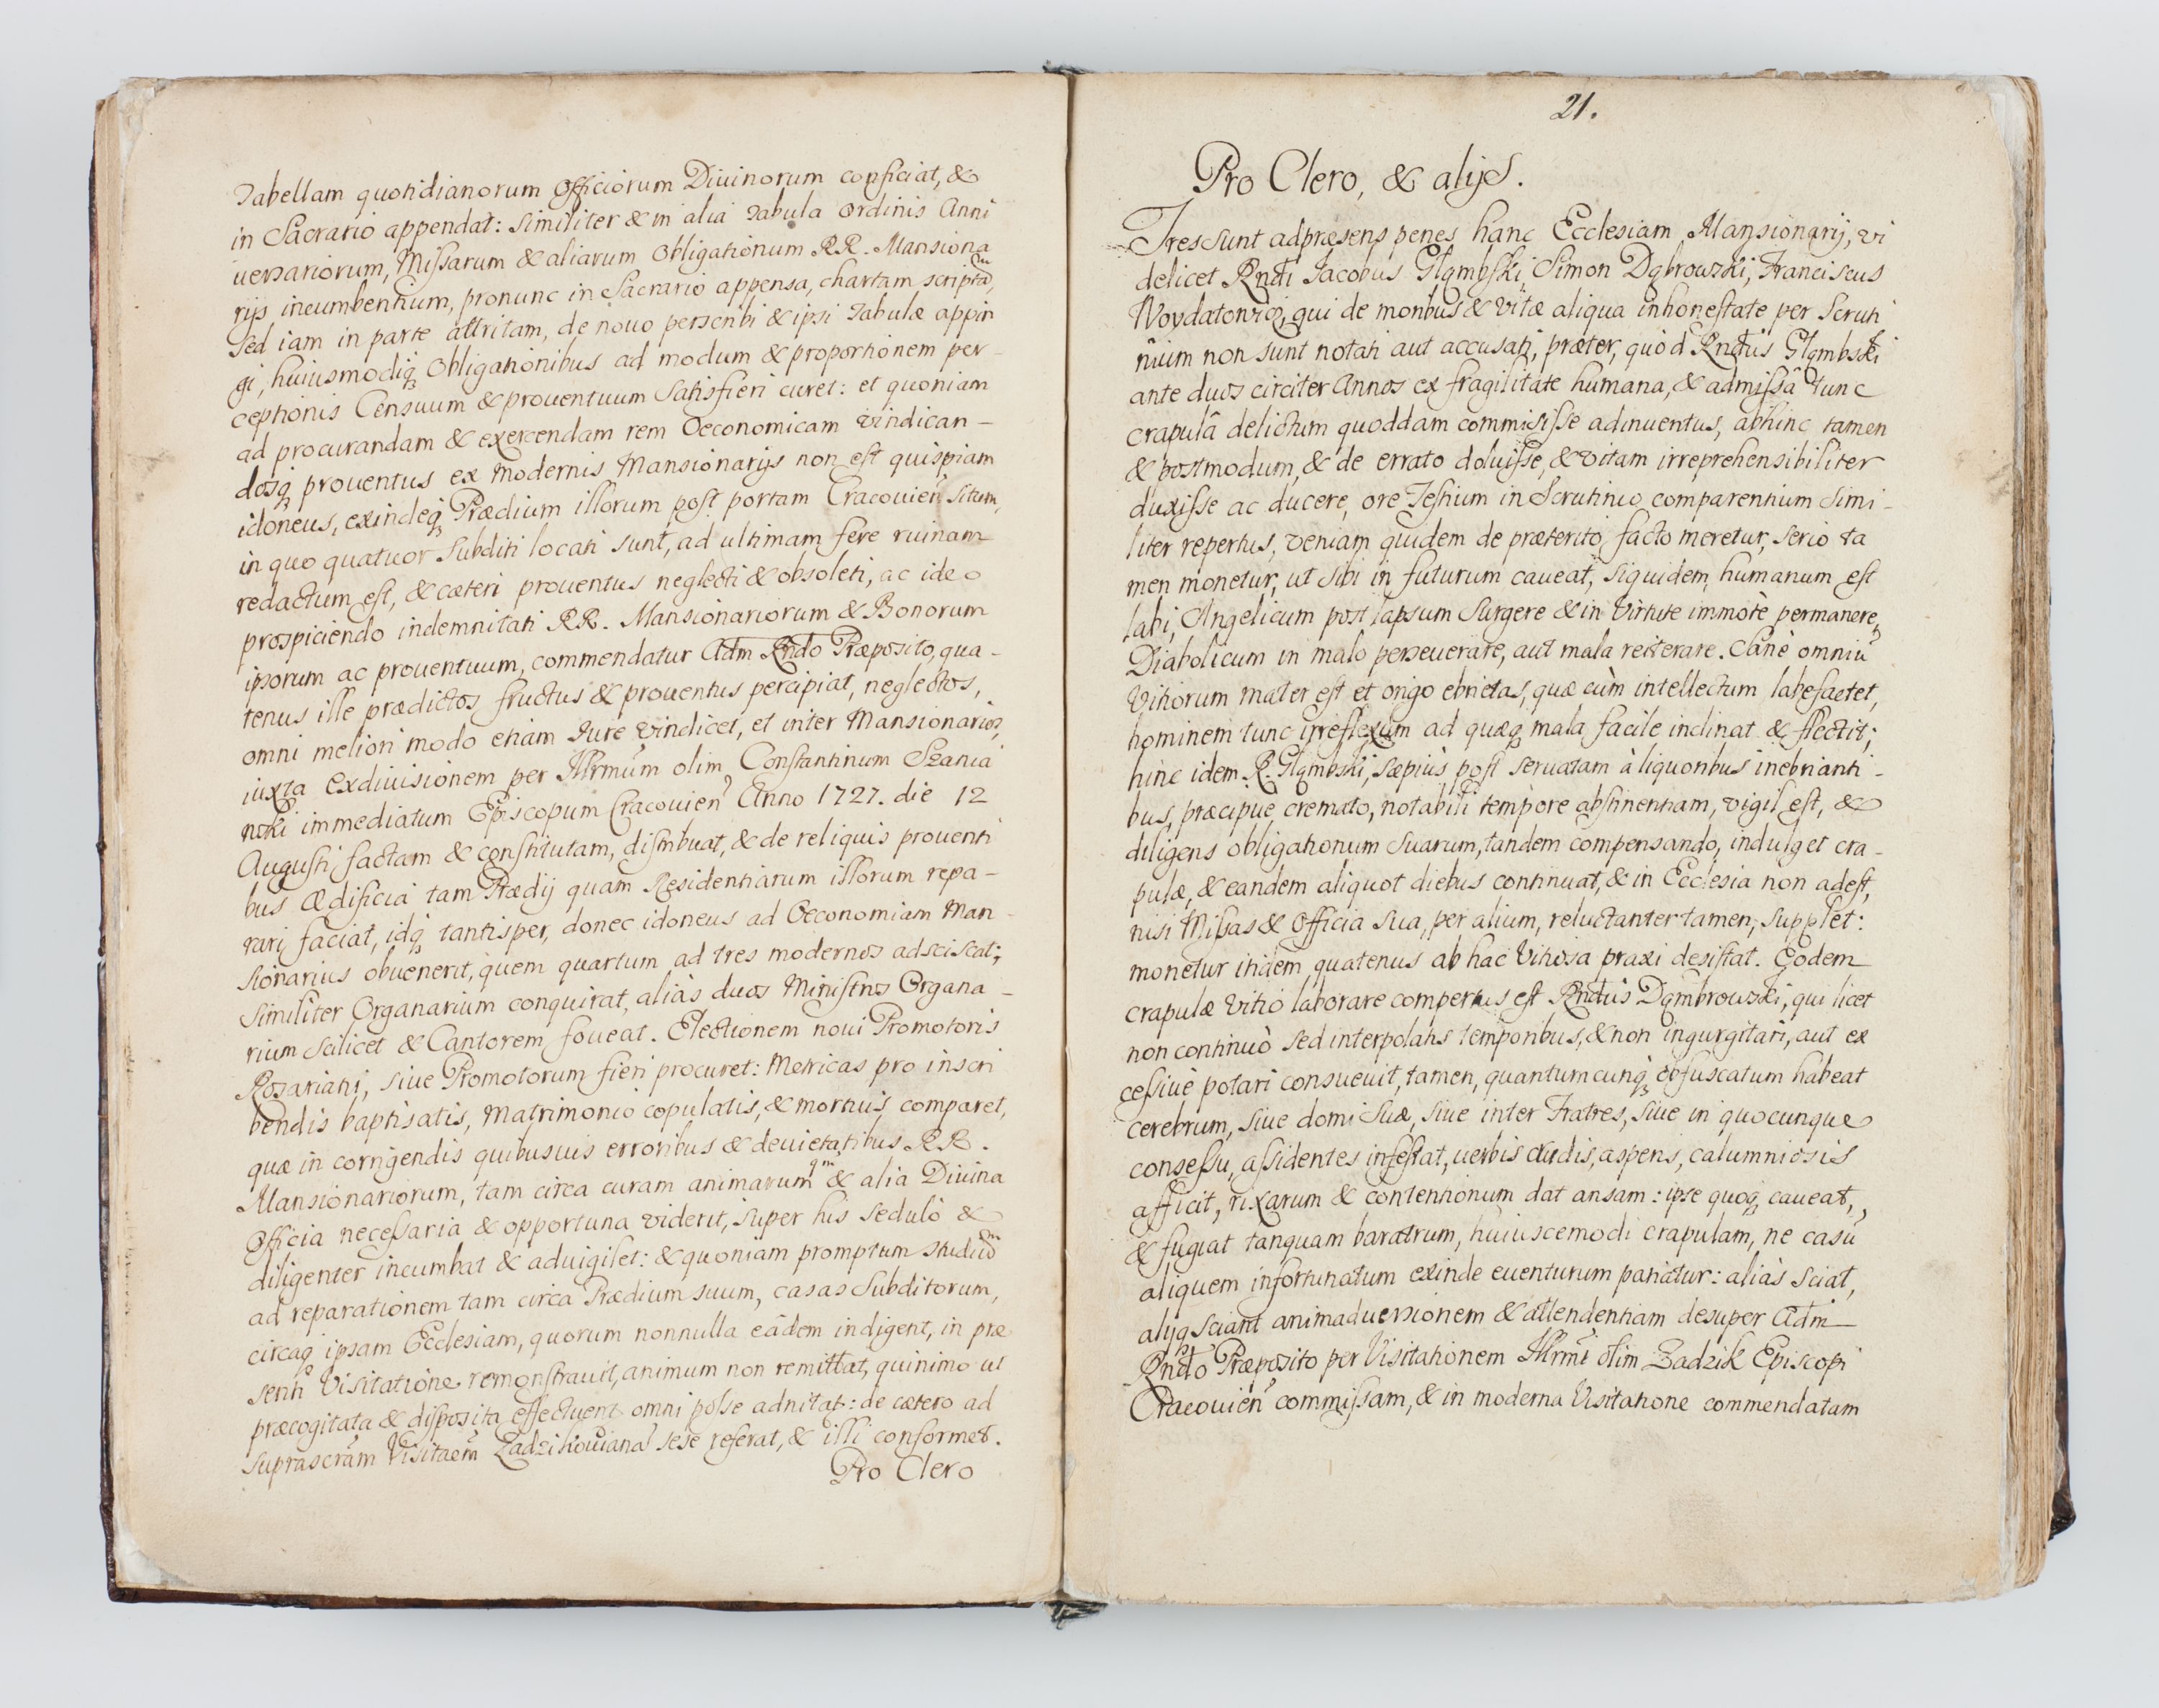 Tabellam quotidianorum Officiorum Diuinorum conficiat, &
in Sacrario appendat: similiter & in alia Tabula Ordinis Anni
uersariorum, Missarum & aliarum Obligationum RR. Mansiona
rijs incumbentium, pronunc in Sacrario appensa, chartam scriptã,
sed iam in parte attritam, de nouo perscribi & ipsi Tabulæ appin
gi, huiusmodiq; Obligationibus ad modum & proportionem per-
ceptionis Censuum & prouentuum satisfieri curet: et quoniam
ad procurandam & exercendam rem Oeconomicam vindican-
dosq; prouentus ex modernis Mansionarijs non est quispiam
idoneus, exindeq; Prædium illorum post portam Cracouieñ situm,
in quo quatuor Subditi locati sunt, ad ultimam fere ruinam
redactum est, & cæteri prouentus neglecti & obsoleti, ac ideo
prospiciendo indemnitati RR. Mansionariorum & Bonorum
ipsorum ac prouentuum, commendatur Adm Rndo Præposito, qua-
tenus ille prædictos fructus & prouentus percipiat, neglectos,
omni meliori modo etiam Jure vindicet, et inter Mansionarios,
iuxta exdiuisionem per Illrmum olim Constantinum Szania
wski immediatum Episcopum Cracouieñ Anno 1727. die 12
Augusti factam & constitutam, distribuat, & de reliquis prouenti
bus Ædificia tam Prædij quam Residentiarum illorum repa-
rari faciat, idq; tantisper, donec idoneus ad Oeconomiam Man-
sionarius obuenerit, quem quartum ad tres modernos adsciscat;
similiter Organarium conquirat, aliàs duos Ministros Organa-
rium scilicet & Cantorem foueat. Electionem noui Promotoris
Rosariani, siue Promotorum fieri procuret: Metricas pro inscri
bendis baptisatis, Matrimonio copulatis, & mortuis comparet,
quæ in corrigendis quibusuis erroribus & deuietatibus RR.
Mansionariorum, tam circa curam animarum qm & alia Diuina
Officia necessaria & opportuna viderit, super his sedulò &
diligenter incumbat & aduigilet: & quoniam promptum studiũ
ad reparationem tam circa Prædium suum, casas Subditorum,
circaq; ipsam Ecclesiam, quorum nonnulla eâdem indigent, in præ
senti Visitatione remonstrauit, animum non remittat, quinimo ut
præcogitata & disposita effectuent omni posse adnitat: de cætero ad
suprascrãm Visitaem Zadzikowianã sese referat, & illi conformet.
Pro Clero
21.
Pro Clero, & alijs.
Tres sunt ad præsens penes hanc Ecclesiam Mansionarij, vi
delicet Rndi Jacobus Głąmbski, Simon Dąbrowski, Franciscus
Woydatowicz, qui de moribus & vitæ aliqua inhonestate per Scruti
nium non sunt notati aut accusati, præter, quòd Rndus Głąmbski
ante duos circiter Annos ex fragilitate humana, & admissâ tunc
crapulâ delictum quoddam commisisse adinuentus, abhinc tamen
& postmodum, & de errato doluisse, & vitam irreprehensibiliter
duxisse ac ducere, ore Testium in Scrutinio comparentium simi-
liter repertus, veniam quidem de præterito facto meretur, serio ta
men monetur, ut sibi in futurum caueat, siquidem humanum est
labi, Angelicum post lapsum surgere & in Virtute immotè permanere,
Diabolicum in malo perseuerare, aut mala reiterare. Sanè omniũ
Vitiorum mater est et origo ebrietas, quæ cùm intellectum labefactet,
hominem tunc irreflexum ad quæq; mala facile inclinat & flectit;
hinc idem R. Głąmbski, sæpiùs post seruatam à liquoribus inebrianti-
bus, præcipue cremato, notabili tempore abstinentiam, vigil est, &
diligens obligationum suarum, tandem compensando, indulget cra-
pulæ, & eandem aliquot diebus continuat, & in Ecclesia non adest,
nisi Missas & Officia sua, per alium, reluctanter tamen, supplet:
monetur itidem quatenus ab hac Vitiosa praxi desistat. Eodem
crapulæ vitio laborare compertus est Rndus Dąmbrowski, qui licet
non continuò sed interpolatis temporibus, & non ingurgitari, aut ex
cessiuè potari consueuit, tamen, quantumcunq; obfuscatum habeat
cerebrum, siue domi suæ, siue inter Fratres, siue in quocunque
consessu, assidentes infestat, uerbis crudis, asperis, calumniosis
afficit, rixarum & contentionum dat ansam: ipse quoq; caueat,
& fugiat tanquam baratrum, huiuscemodi crapulam, ne casũ
aliquem infortunatum exinde euenturum patiatur: aliàs sciat,
alijq; sciant animaduersionem & attendentiam desuper Adm
Rndo Præposito per Visitationem Illrmi olim Zadzik Episcopi
Cracouieñ commissam, & in moderna Visitatione commendatam